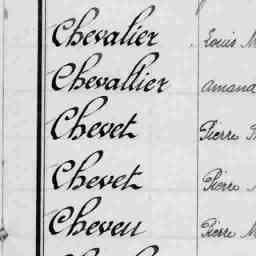 Chevalier Louis M
Chevallier Amand
Chevet Pierre
Chevet Pierre
Cheveu Pierre M